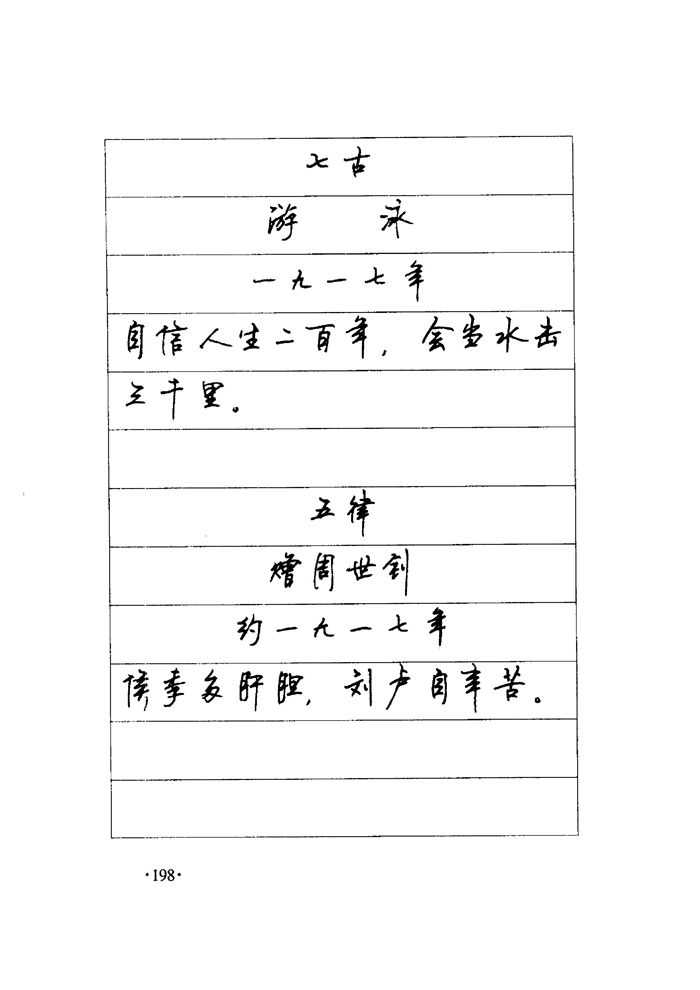 七古
游 泳
一九一七年
自信人生二百年，会当水击
三千里。
五律
赠周世钊
约一九一七年
侯季多肝胆，刘卢自辛苦。
·198·